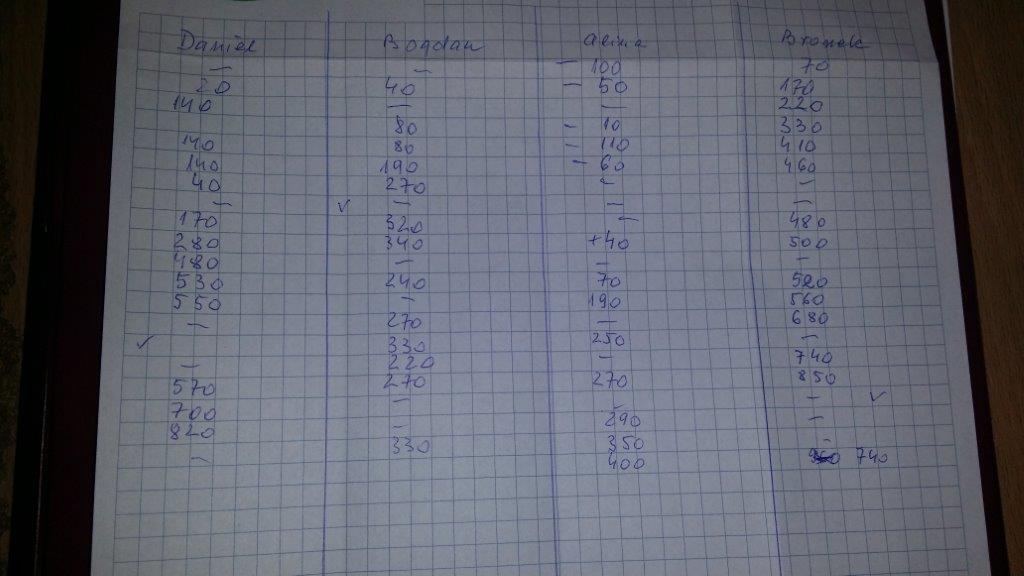 Daniel Bogdan Alina Bronek
— — — 100 70
20 40 — 50 170
140 — — 220
80 — 10 330
140 80 — 110 410
140 190 — 60 460
40 270 — —
— ✓ — — —
170 320 — 480
280 340 +40 500
480 — — —
530 240 70 520
550 — 190 560
— 270 — 680
✓ 330 250 —
— 220 — 740
570 270 270 850
700 — — — ✓
820 — 290 —
— 330 350 —
400 740